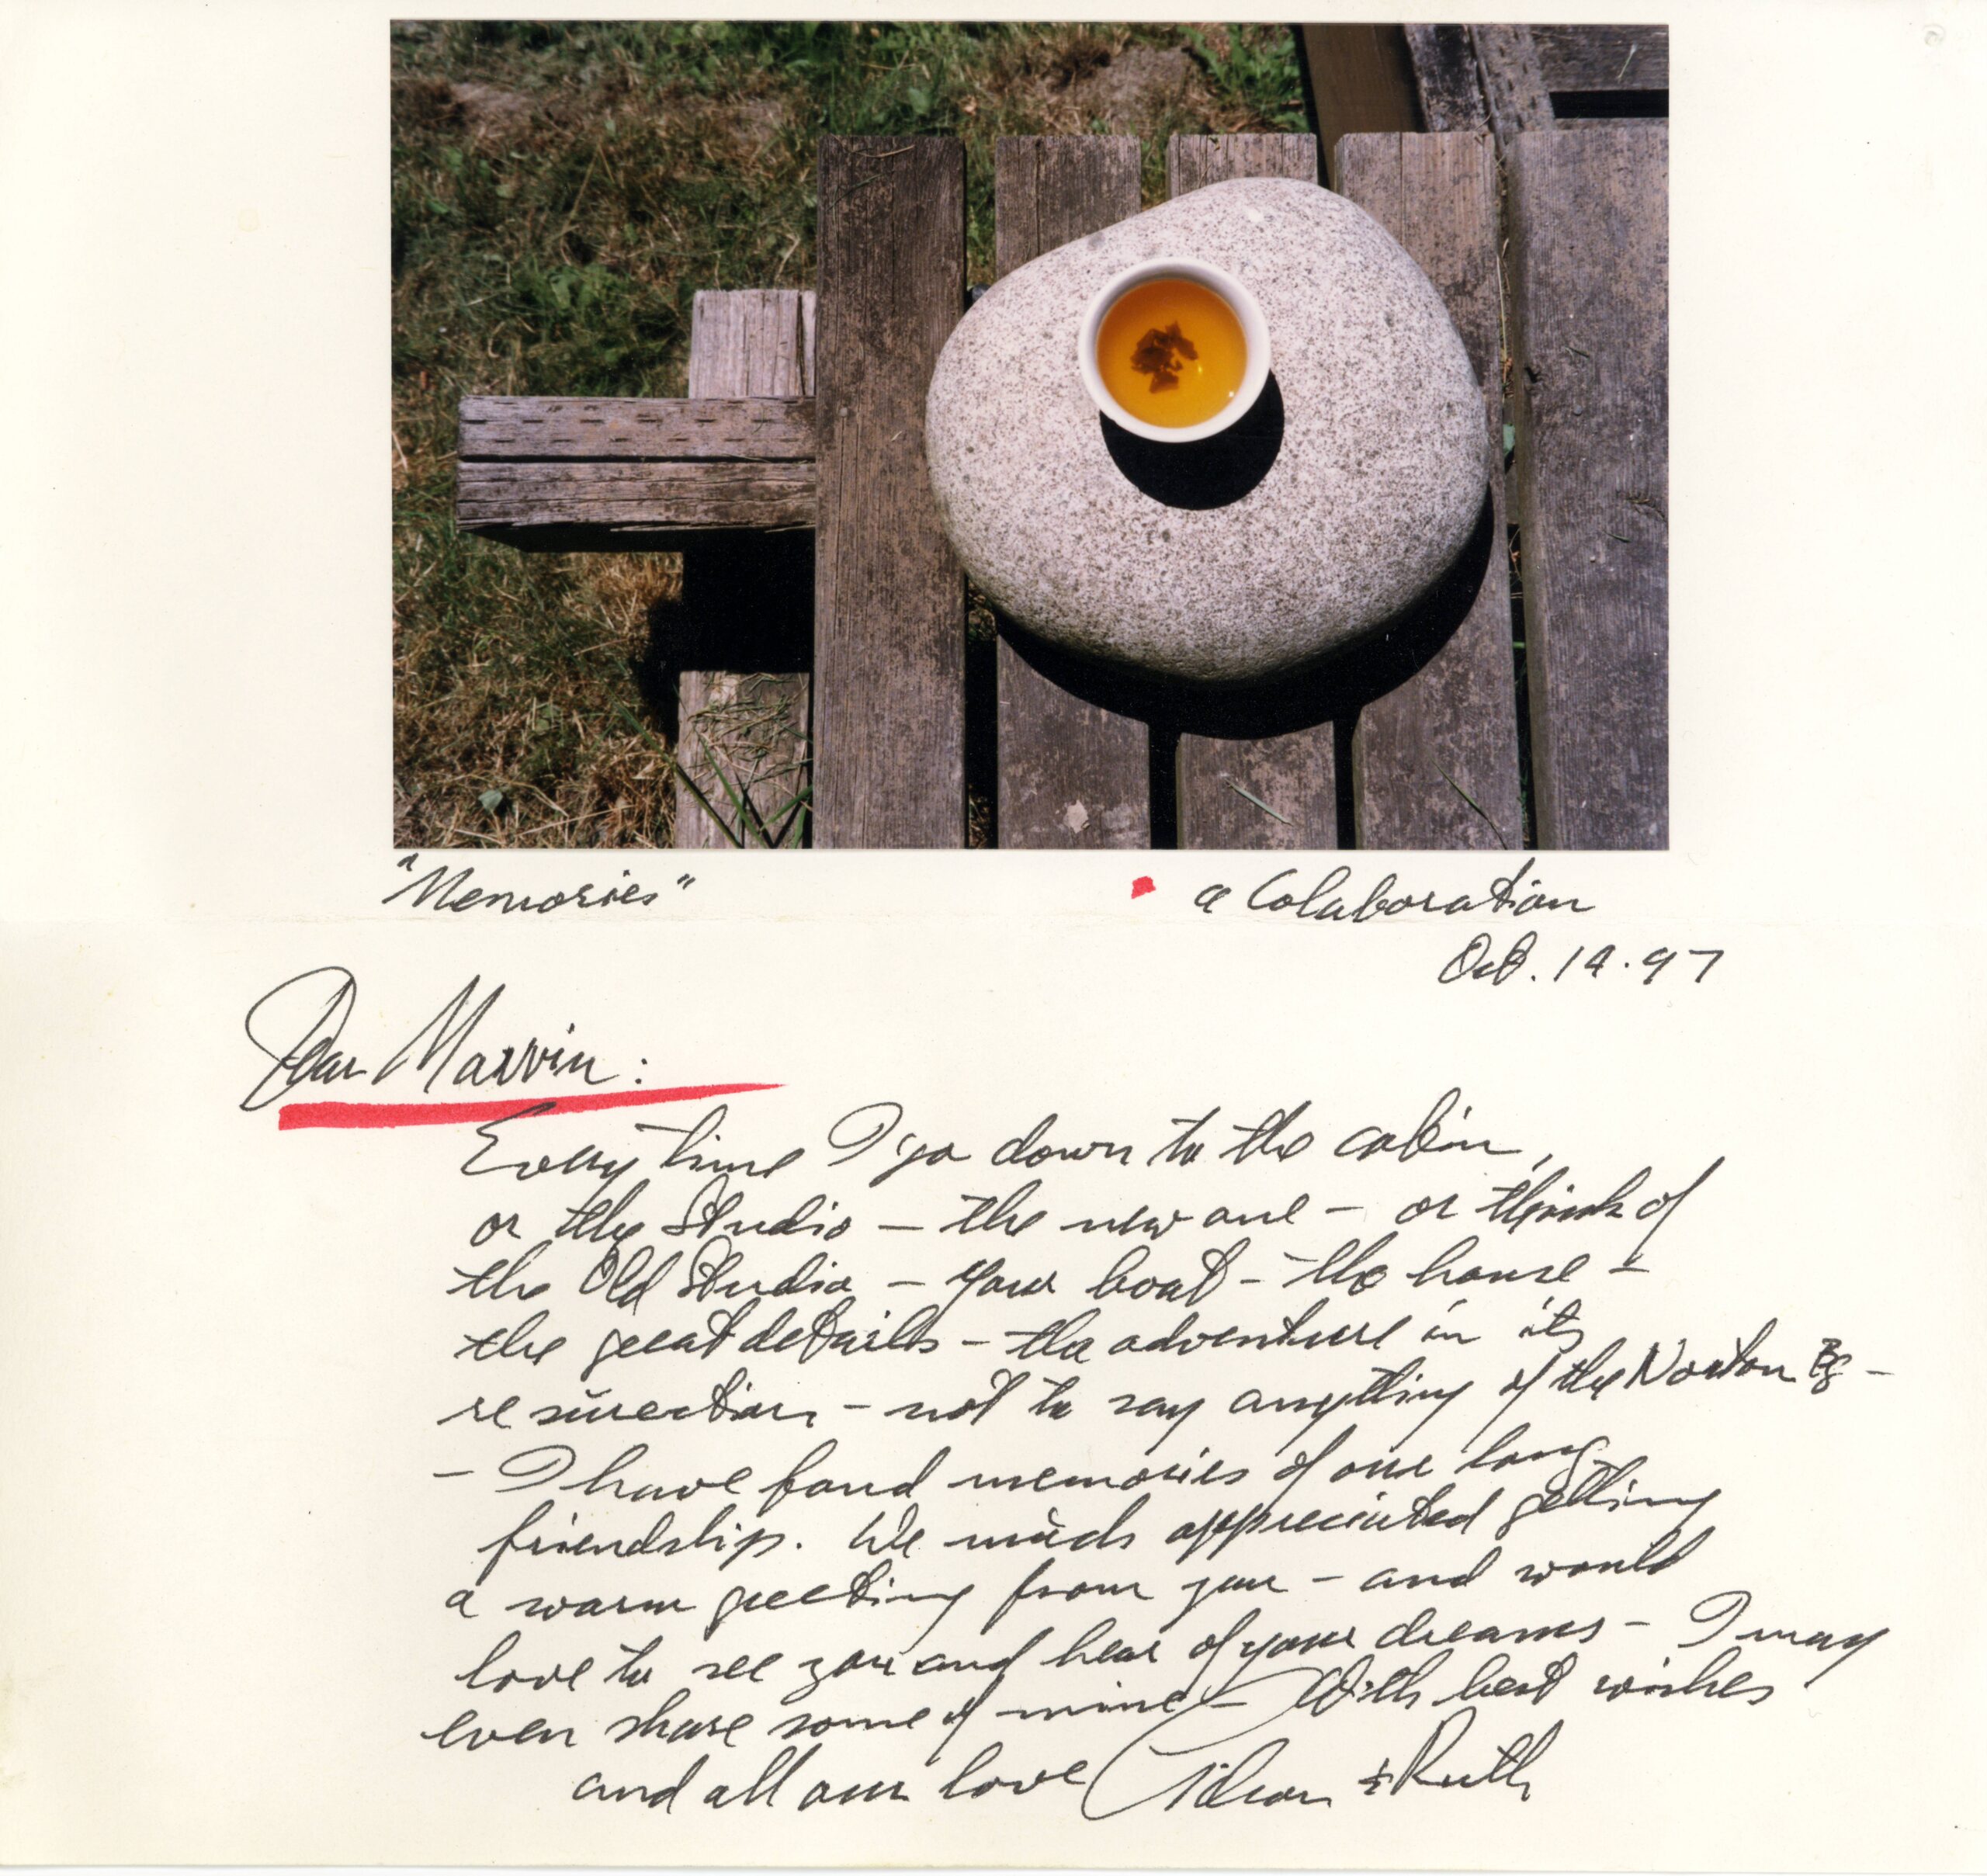 "Memories"
a Colaboration
Oct. 14.97
Dear Marvin:
Every time I go down to the cabin,
or the Studio - the new one - or think of
the Old Studio - your boat - the house -
the great details - the adventure in its
resurection - not to say anything of the Norton Bg -
- I have fond memories of our long
friendship. We much appreciated getting
a warm greeting from you - and would
love to see you and hear of your dreams - I may
even share some of mine - With best wishes
and all our love & Ruth